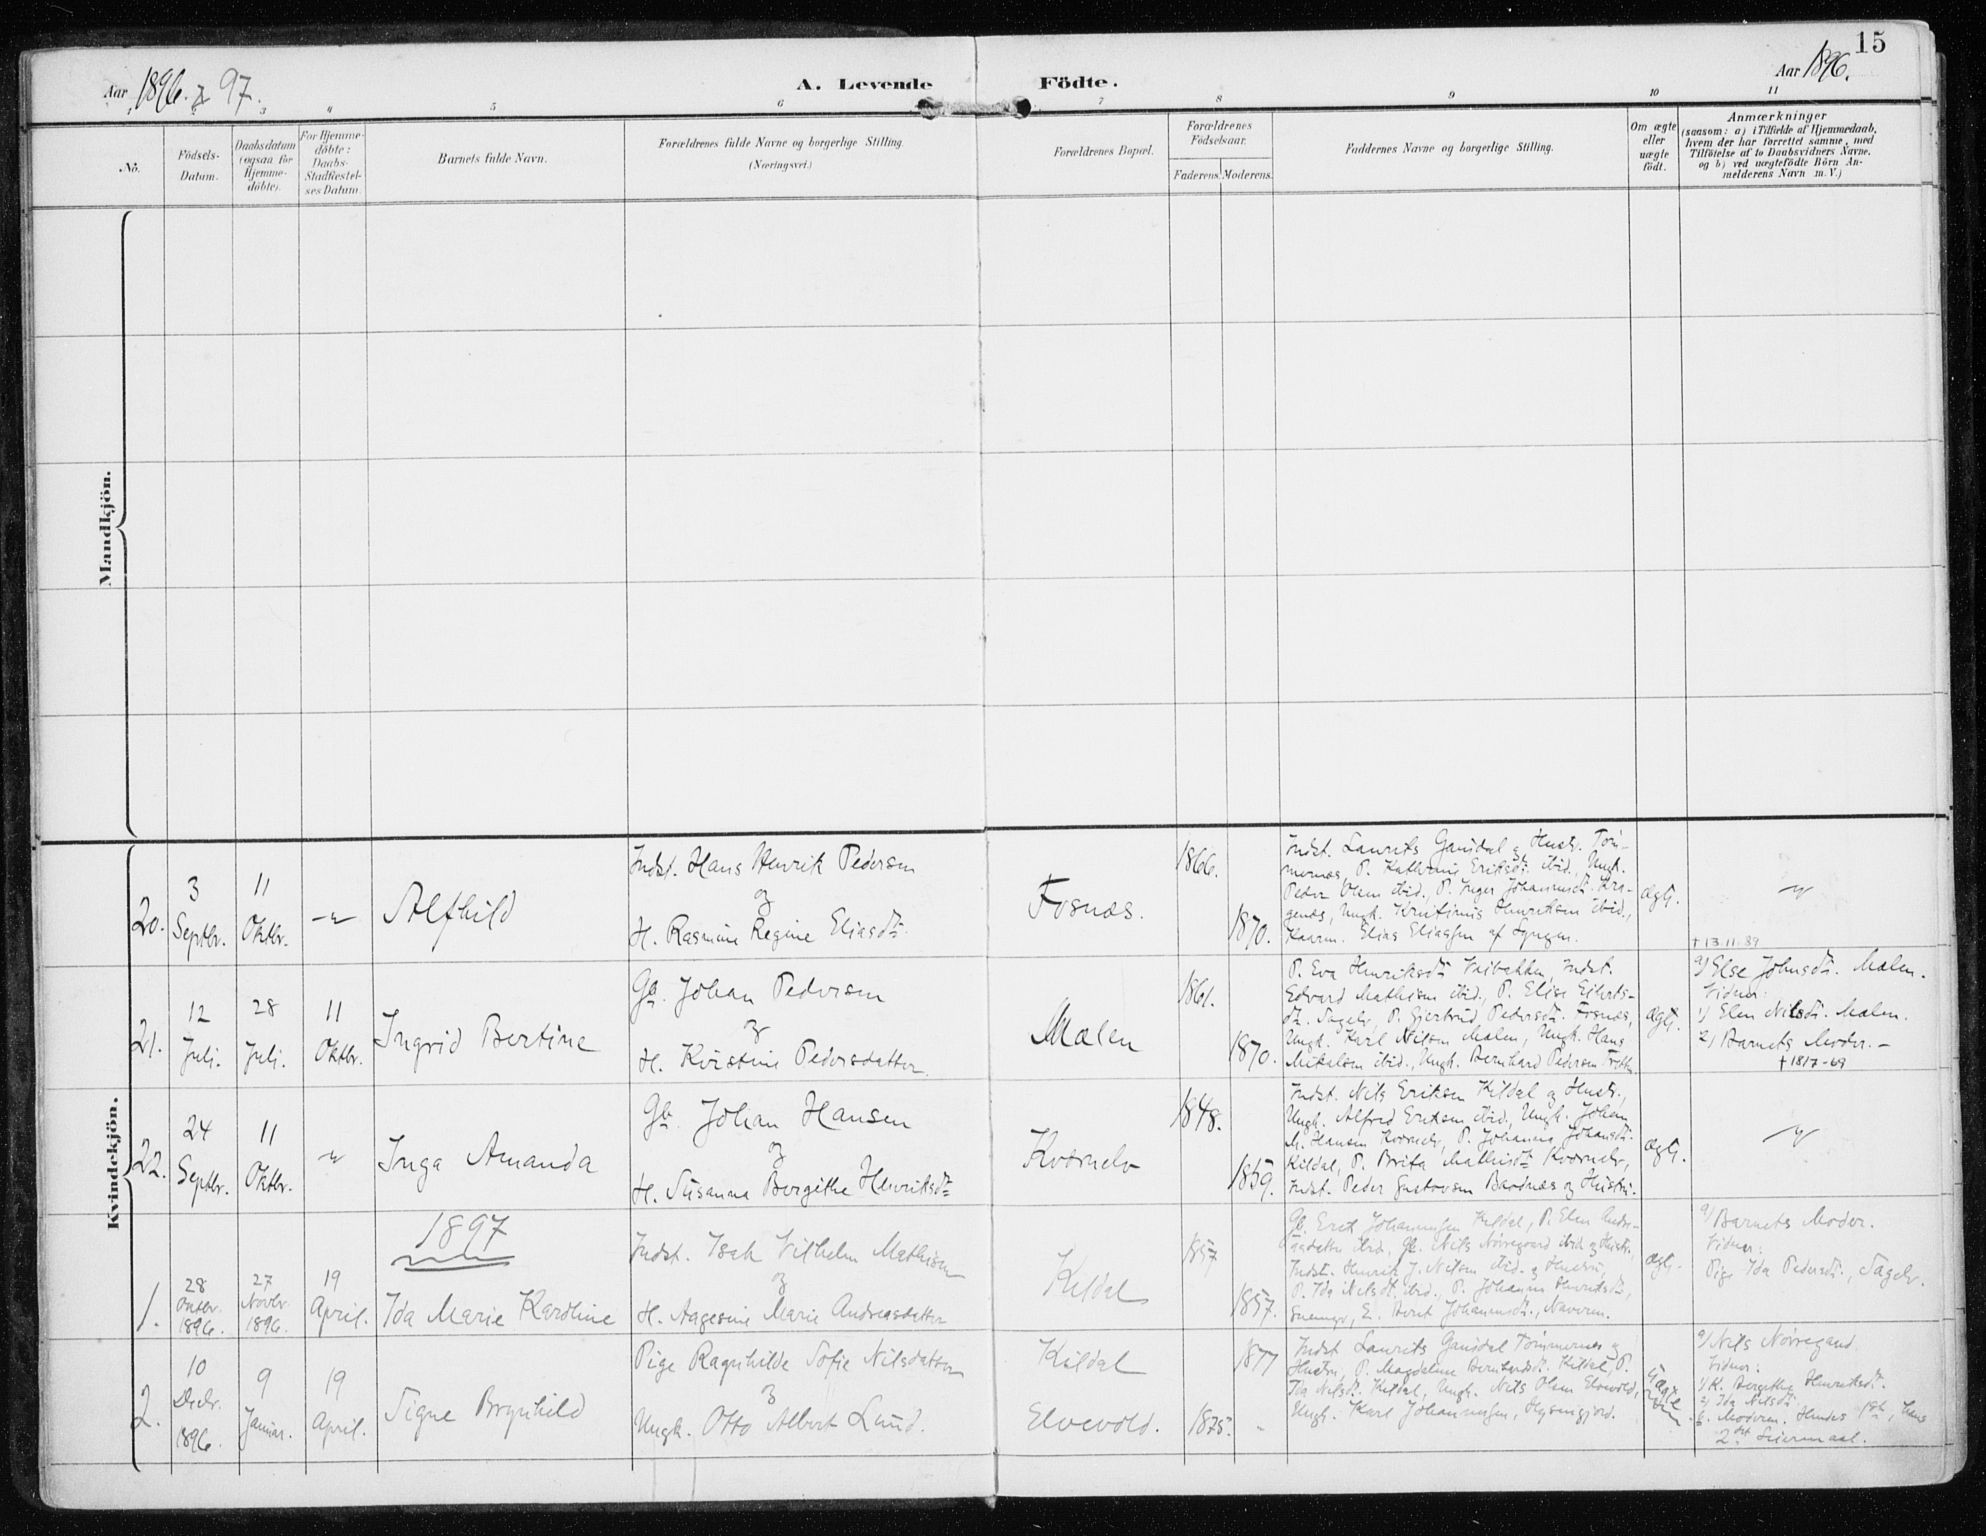 15
Aar 1896 & 97.
A. Levende Födte.
Aar 1896.
1 2 3 4 5 6 7 8 9 10 11
No.
Födsels-
Datum.
Daabsdatum
(ogsaa for
Hjemme-
döbte).
For Hjemme-
döbte:
Daabs-
Stadfæstel-
ses Datum.
Barnets fulde Navn.
Forældrenes fulde Navne og borgerlige Stilling.
(Næringsvei.)
Forældrenes Bopæl.
Forældrenes
Födselsaar.
Faderens. Moderens.
Faddernes Navne og borgerlige Stilling.
Om ægte
eller
uægte
födt.
Anmærkninger
(saasom: a) i Tilfælde af Hjemmedaab,
hvem der har forrettet samme, med
Tilföielse af to Daabsvidners Navne,
og b) ved uægtefödte Börn An-
melderens Navn m. V.)
Mandkjön.
Kvindekjön.
20.
3
Septbr.
11
Oktbr.
Alfhild
Indst. Hans Henrik Pedersen
og
H. Rasmine Regine Eliasdtr.
Fosnæs.
1866.
1870.
Indst. Laurits Gausdal & Hustr. Töm-
mernæs, P. Kathrine Eriksdtr. ibid., Ungk.
Peder Olsen ibid., P. Inger Johannesdtr. Kra-
genæs, Ungk. Kristinus Henriksen ibid.,
Kaarm. Elias Eliassen af Lyngen.
ægt.
+13.11.89
21.
12
Juli.
28
Juli.
11
Oktbr.
Ingrid Bertine
Gb. Johan Pedersen
og
H. Kristine Pedersdatter.
Mælen
1861.
1870.
P. Eva Henriksdtr. , Indst.
Edvard Mathisen ibid., P. Elise Eilerts-
dtr. Sagelv, P. Gjertrud Pedersdtr. Fosnæs,
Ungk. Karl Nilsen Mælen, Ungk. Hans
Mikalsen ibid., Ungk. Bernhard Pedersen
ægt.
a) Else Johnsdtr. Mælen.
Vidner:
1) Elen Nilsdtr. Mælen.
2) Barnets Moder. -
+ 1817-69
22.
24
Septbr.
11
Oktbr.
Inga Amanda
Gb. Johan Hansen
og
H. Susanna Bergithe Henriksdtr.
Kværnelv
1848.
1859.
Indst. Nils Eriksen Kildal og Hustr.,
Ungk. Alfred Eriksen ibid., Ungk. Johan
M. Hansen Kværnelv, P. Johanna Johansdtr.
Kildal, P. Brita Mathisdtr. Kværnelv,
Indst. Peder Gustavsen Bardnæs og Hustru.
ægt.
1897
1.
28
Oktbr.
1896.
27
Novbr.
1896.
19
April.
Ida Marie Karoline
Indst. Isak Vilhelm Mathisen
og
H. Aagesine Marie Andreasdatter
Kildal
1857
1857.
Gb. Erik Johannesen Kildal, P. Elen Andre-
asdatter ibid., Gb. Nils Nörregaard ibid og Hustr.,
Indst. Henrik J. Nilsen ibid. og Hustru,
P. Ida Nilsdt. ibid., P. Johanna Henriksdtr.,
, E. Berit Johannesdtr., Navaren.
ægt.
a) Barnets Moder.
Vidner:
Pige Ida Pedersdtr., Sagelv.
2.
10
Decbr.
1896.
9
Januar.
19
April.
Signe Brynhild
Pige Ragnhilde Sofie Nilsdatter
og
Ungk. Otto Albert Lund.
Kildal
Elvevold.
1877
1875.
Indst. Laurits Gausdal Tömmernes og
Hustru, P. Magdalene Bernhardsdt. Kildal, P.
Ida Nilsdt. Kildal, Ungk. Nils Olsen Elvevold,
Ungk. Karl Johannesen,
Uægte
a) Nils Nörregaard.
Vidner:
1) K. Bergithe Henriksdt.
2) Ida Nilsdt.
b. Moderen. Hendes 1ste, hans
2det Leiermaal.